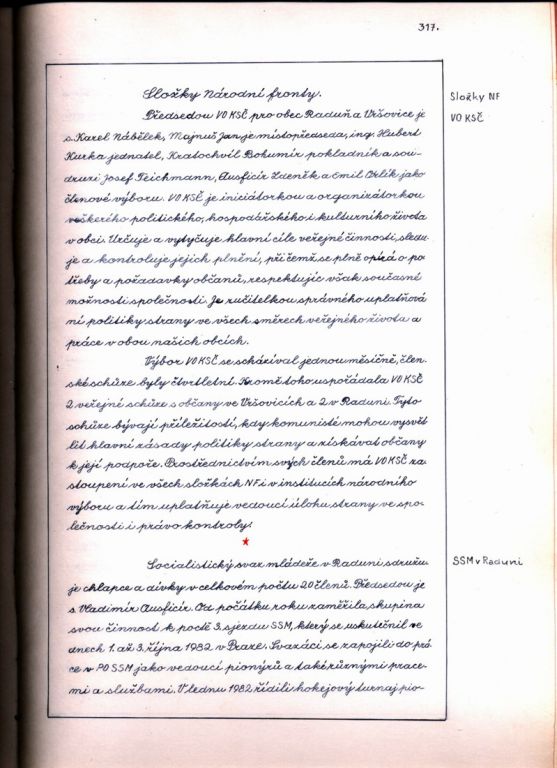 317.
Složky Národní fronty.
Složky NF
Předsedou VO KSČ pro obec Raduň a Vršovice je
VO KSČ
s. Karel Nábělek, Majnuš Jan je místopředseda, ing. Hubert
Kurka jednatel, Kratochvíl Bohumír pokladník a sou-
druzi Josef Teichmann, Ausficír Zdeněk a Emil Orlík jako
členové výboru. VO KSČ je iniciátorkou a organizátorkou
veškerého politického, hospodářského i kulturního života
v obci. Určuje a vytyčuje hlavní cíle veřejné činnosti, sledu-
je a kontroluje jejich plnění, při čemž se plně opírá o po
třeby a požadavky občanů, respektujíc však současné
možnosti společnosti. Je ručitelkou správného uplatňová
ní politiky strany ve všech směrech veřejného života a
práce v obou našich obcích.
Výbor VO KSČ se scházíval jednou měsíčně, člen-
ské schůze byly čtvrtletní. Kromě toho uspořádala VO KSČ
2 veřejné schůze s občany ve Vršovicích a 2 v Raduni. Tyto
schůze bývají příležitostí, kdy komunisté mohou vysvět
lit hlavní zásady politiky strany a získávat občany
k její podpoře. Prostřednictvím svých členů má VO KSČ za-
stoupení ve všech složkách NF i v institucích národního
výboru a tím uplatňuje vedoucí úlohu strany ve spo-
lečnosti i právo kontroly.
Socialistický svaz mládeže v Raduni sdružu-
SSM v Raduni
je chlapce a dívky v celkovém počtu 20 členů. Předsedou je
s. Vladimír Ausficír. Od počátku roku zaměřila skupina
svou činnost k poctě 3. sjezdu SSM, který se uskutečnil ve
dnech 1. až 3. října 1982 v Praze. Svazáci se zapojili do prá
ce v PO SSM jako vedoucí pionýrů a také různými prace-
mi a službami. V lednu 1982 řídili hokejový turnaj pio-